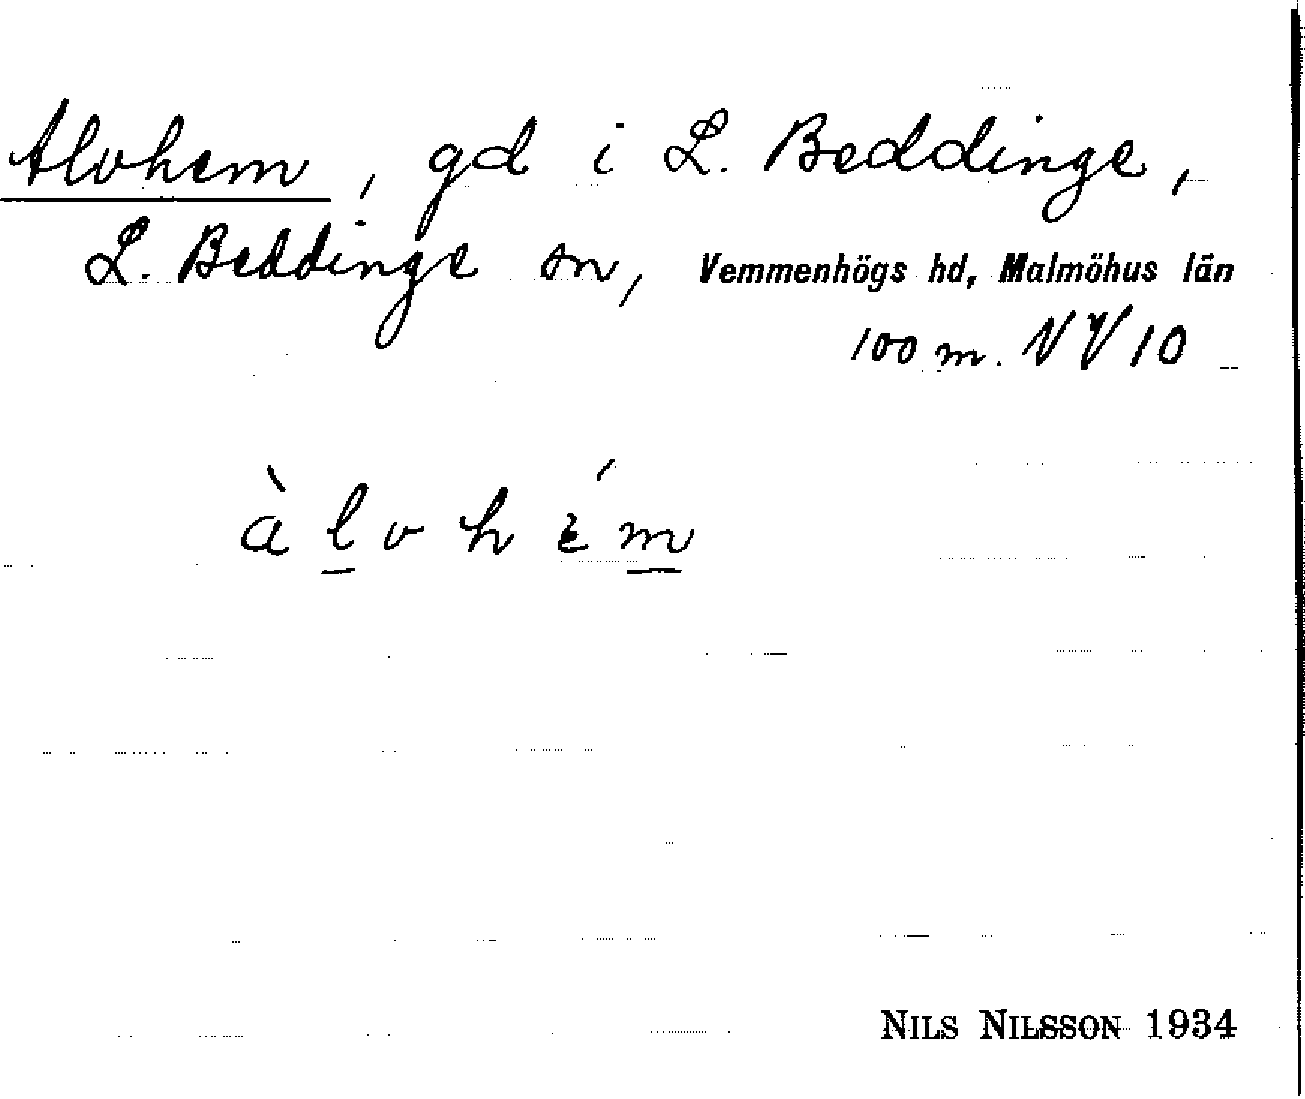 Alvhem, gd i L. Beddinge,
L. Beddinge sn, Vemmenhögs hd, Malmöhus län
100 m. NV 10
àlvhém
NILS NILSSON 1934